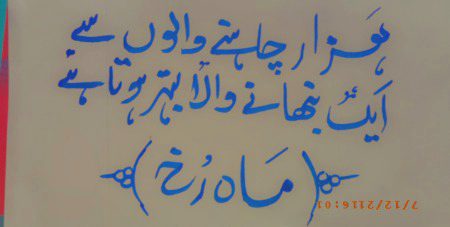 ہزار چاہنے والوں سے
ایک نبھانے والا بہتر ہوتا ہے
(ماہ رُخ)
7/12/2116:01